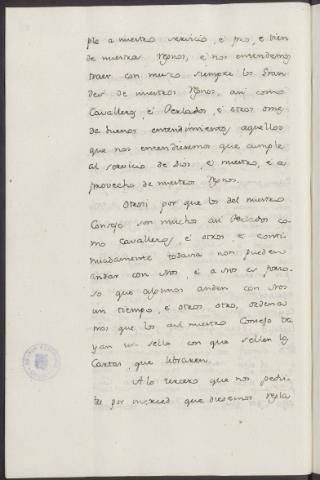 ple a nuestro servicio, è pro, e bien
de nuestros Rgnos, è nos entendemos
traer con nusco siempre los Gran-
des de nuestros Rgnos, asi como
Cavalleros, è Perlados, è otros omes
de buenos entendimientos aquellos
que nos entendieremos que cumple
al servicio de Dios, e nuestro, è a
provecho de nuestros Rgnos.
Otrosi por que los del nuestro
Consejo son muchos asi Perlados co-
mo Cavalleros, è otros e conti-
nuadamente todavia non pueden
andar con Nos, è a Nos es forzo-
so que algunos anden con Nos
un tiempo, è otros otro, ordena-
mos que los del nuestro Consejo tra-
yan un sello con que sellen las
Cartas que libraren.
A lo tercero que nos pedis-
tes por merced que diesemos regla